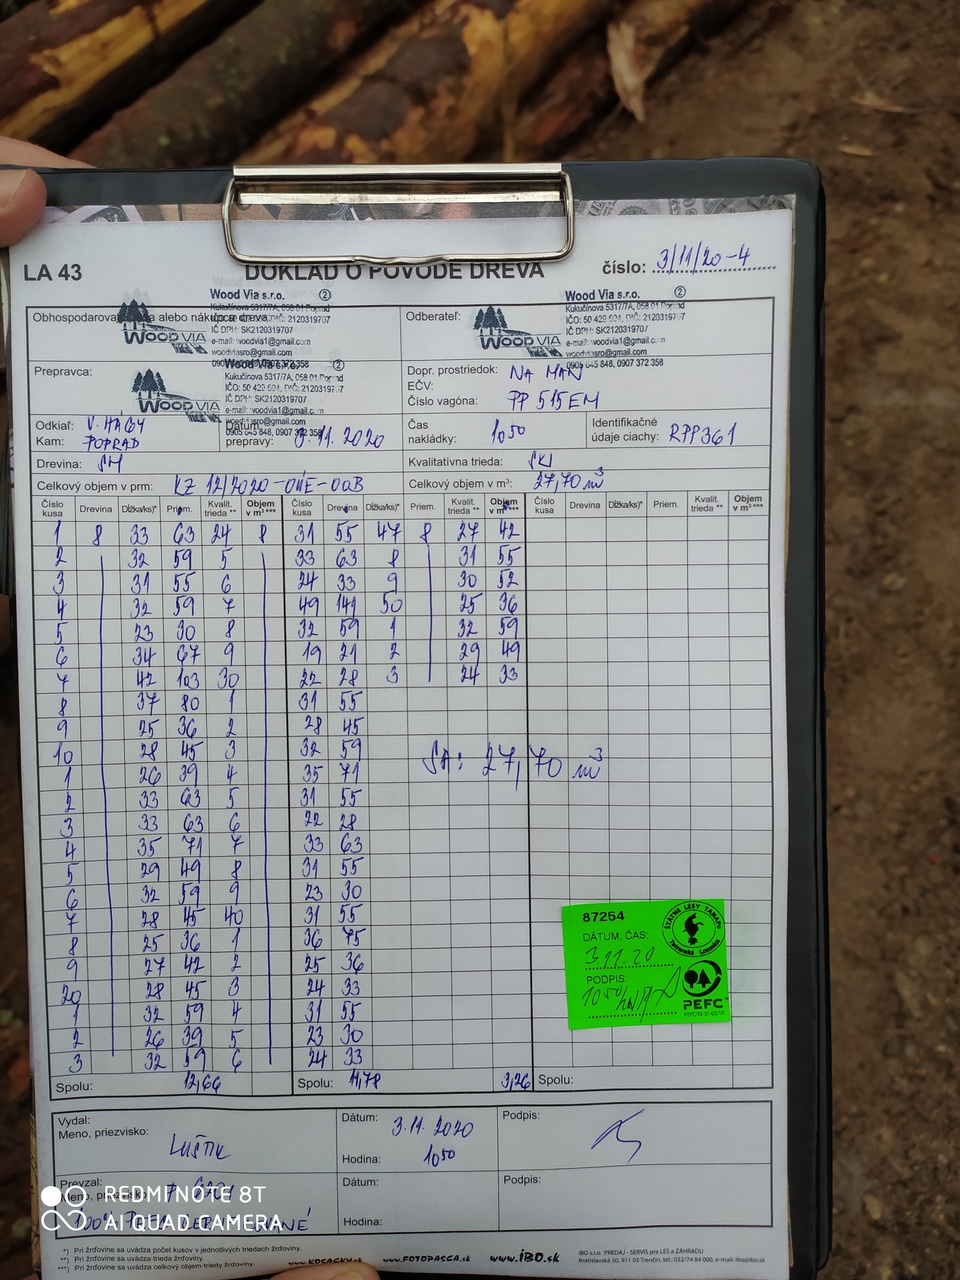 LA 43
DOKLAD O PÔVODE DREVA
číslo: 3/11/20-4
Wood Via s.r.o. ②
Kukučínova 5317/7A, 058 01 Poprad
IČO: 50 429 604, DIČ: 2120319707
IČ DPH: SK2120319707
e-mail: woodvia1@gmail.com
woodviasro@gmail.com
WOOD VIA
Odberateľ:
Wood Via s.r.o. ②
Kukučínova 5317/7A, 058 01 Poprad
IČO: 50 429 604, DIČ: 2120319707
IČ DPH: SK2120319707
e-mail: woodvia1@gmail.com
woodviasro@gmail.com
0905 845 848, 0907 372 358
WOOD VIA
Prepravca:
Kukučínova 5317/7A, 058 01 Poprad
IČO: 50 429 604, DIČ: 2120319707
IČ DPH: SK2120319707
WOOD VIA
Dopr. prostriedok: NA MAN
EČV:
Číslo vagóna: PP 515EM
Odkiaľ: V. HÁGY
Kam: POPRAD
Dátum prepravy: 3.11.2020
Čas nakládky: 10 50
Identifikačné údaje ciachy: RPP361
Drevina: SM
Kvalitatívna trieda:
Celkový objem v prm: KZ 12/2020-
Celkový objem v m³: 27,70 m³
Číslo kusa Drevina Dĺžka/ks)* Priem. Kvalit. trieda ** Objem v m³*** Číslo kusa Drevina Dĺžka/ks)* Priem. Kvalit. trieda ** Objem v m³*** Číslo kusa Drevina Dĺžka/ks)* Priem. Kvalit. trieda ** Objem v m³***
1 8 33 63 24 8 31 55 47 8 27 42
2 32 59 5 33 63 8 31 55
3 31 55 6 24 33 9 30 52
4 32 59 7 49 141 50 25 36
5 23 30 8 32 59 1 32 59
6 34 67 9 19 21 2 29 49
7 42 103 30 22 28 3 24 33
8 37 80 1 31 55
9 25 36 2 28 45
10 28 45 3 32 59
1 26 39 4 35 71
2 33 63 5 31 55
3 33 63 6 22 28
4 35 71 7 33 63
5 29 49 8 31 55
6 32 59 9 23 30
7 28 45 40 31 55
8 25 36 1 36 75
9 27 42 2 25 36
20 28 45 3 24 33
1 32 59 4 31 55
2 26 39 5 23 30
3 32 59 6 24 33
SA: 27,70 m³
Spolu: 12,66 Spolu: 11,78 3,26 Spolu:
87254
DÁTUM; ČAS:
3.11.20
PODPIS:
10 50
ŠTÁTNE LESY TANAPU
Tatranská Lomnica
PEFC
Vydal:
Meno, priezvisko:
LUŠTIK
Dátum: 3.11.2020
Hodina: 10 50
Podpis:
Prevzal:
Meno, priezvisko:
Dátum:
Hodina:
Podpis:
100%
REDMI NOTE 8T
AI QUAD CAMERA
*) Pri žrďovine sa uvádza počet kusov v jednotlivých triedach žrďoviny.
**) Pri žrďovine sa uvádza trieda žrďoviny.
***) Pri žrďovine sa uvádza celkový objem triedy žrďoviny.
www.KOSACKY.sk www.FOTOPASCA.sk www.iBO.sk
IBO s.r.o. PREDAJ - SERVIS pre LES a ZÁHRADU
Bratislavská 50, 911 05 Trenčín, tel.: 032/74 84 000, e-mail: ibo@ibo.sk